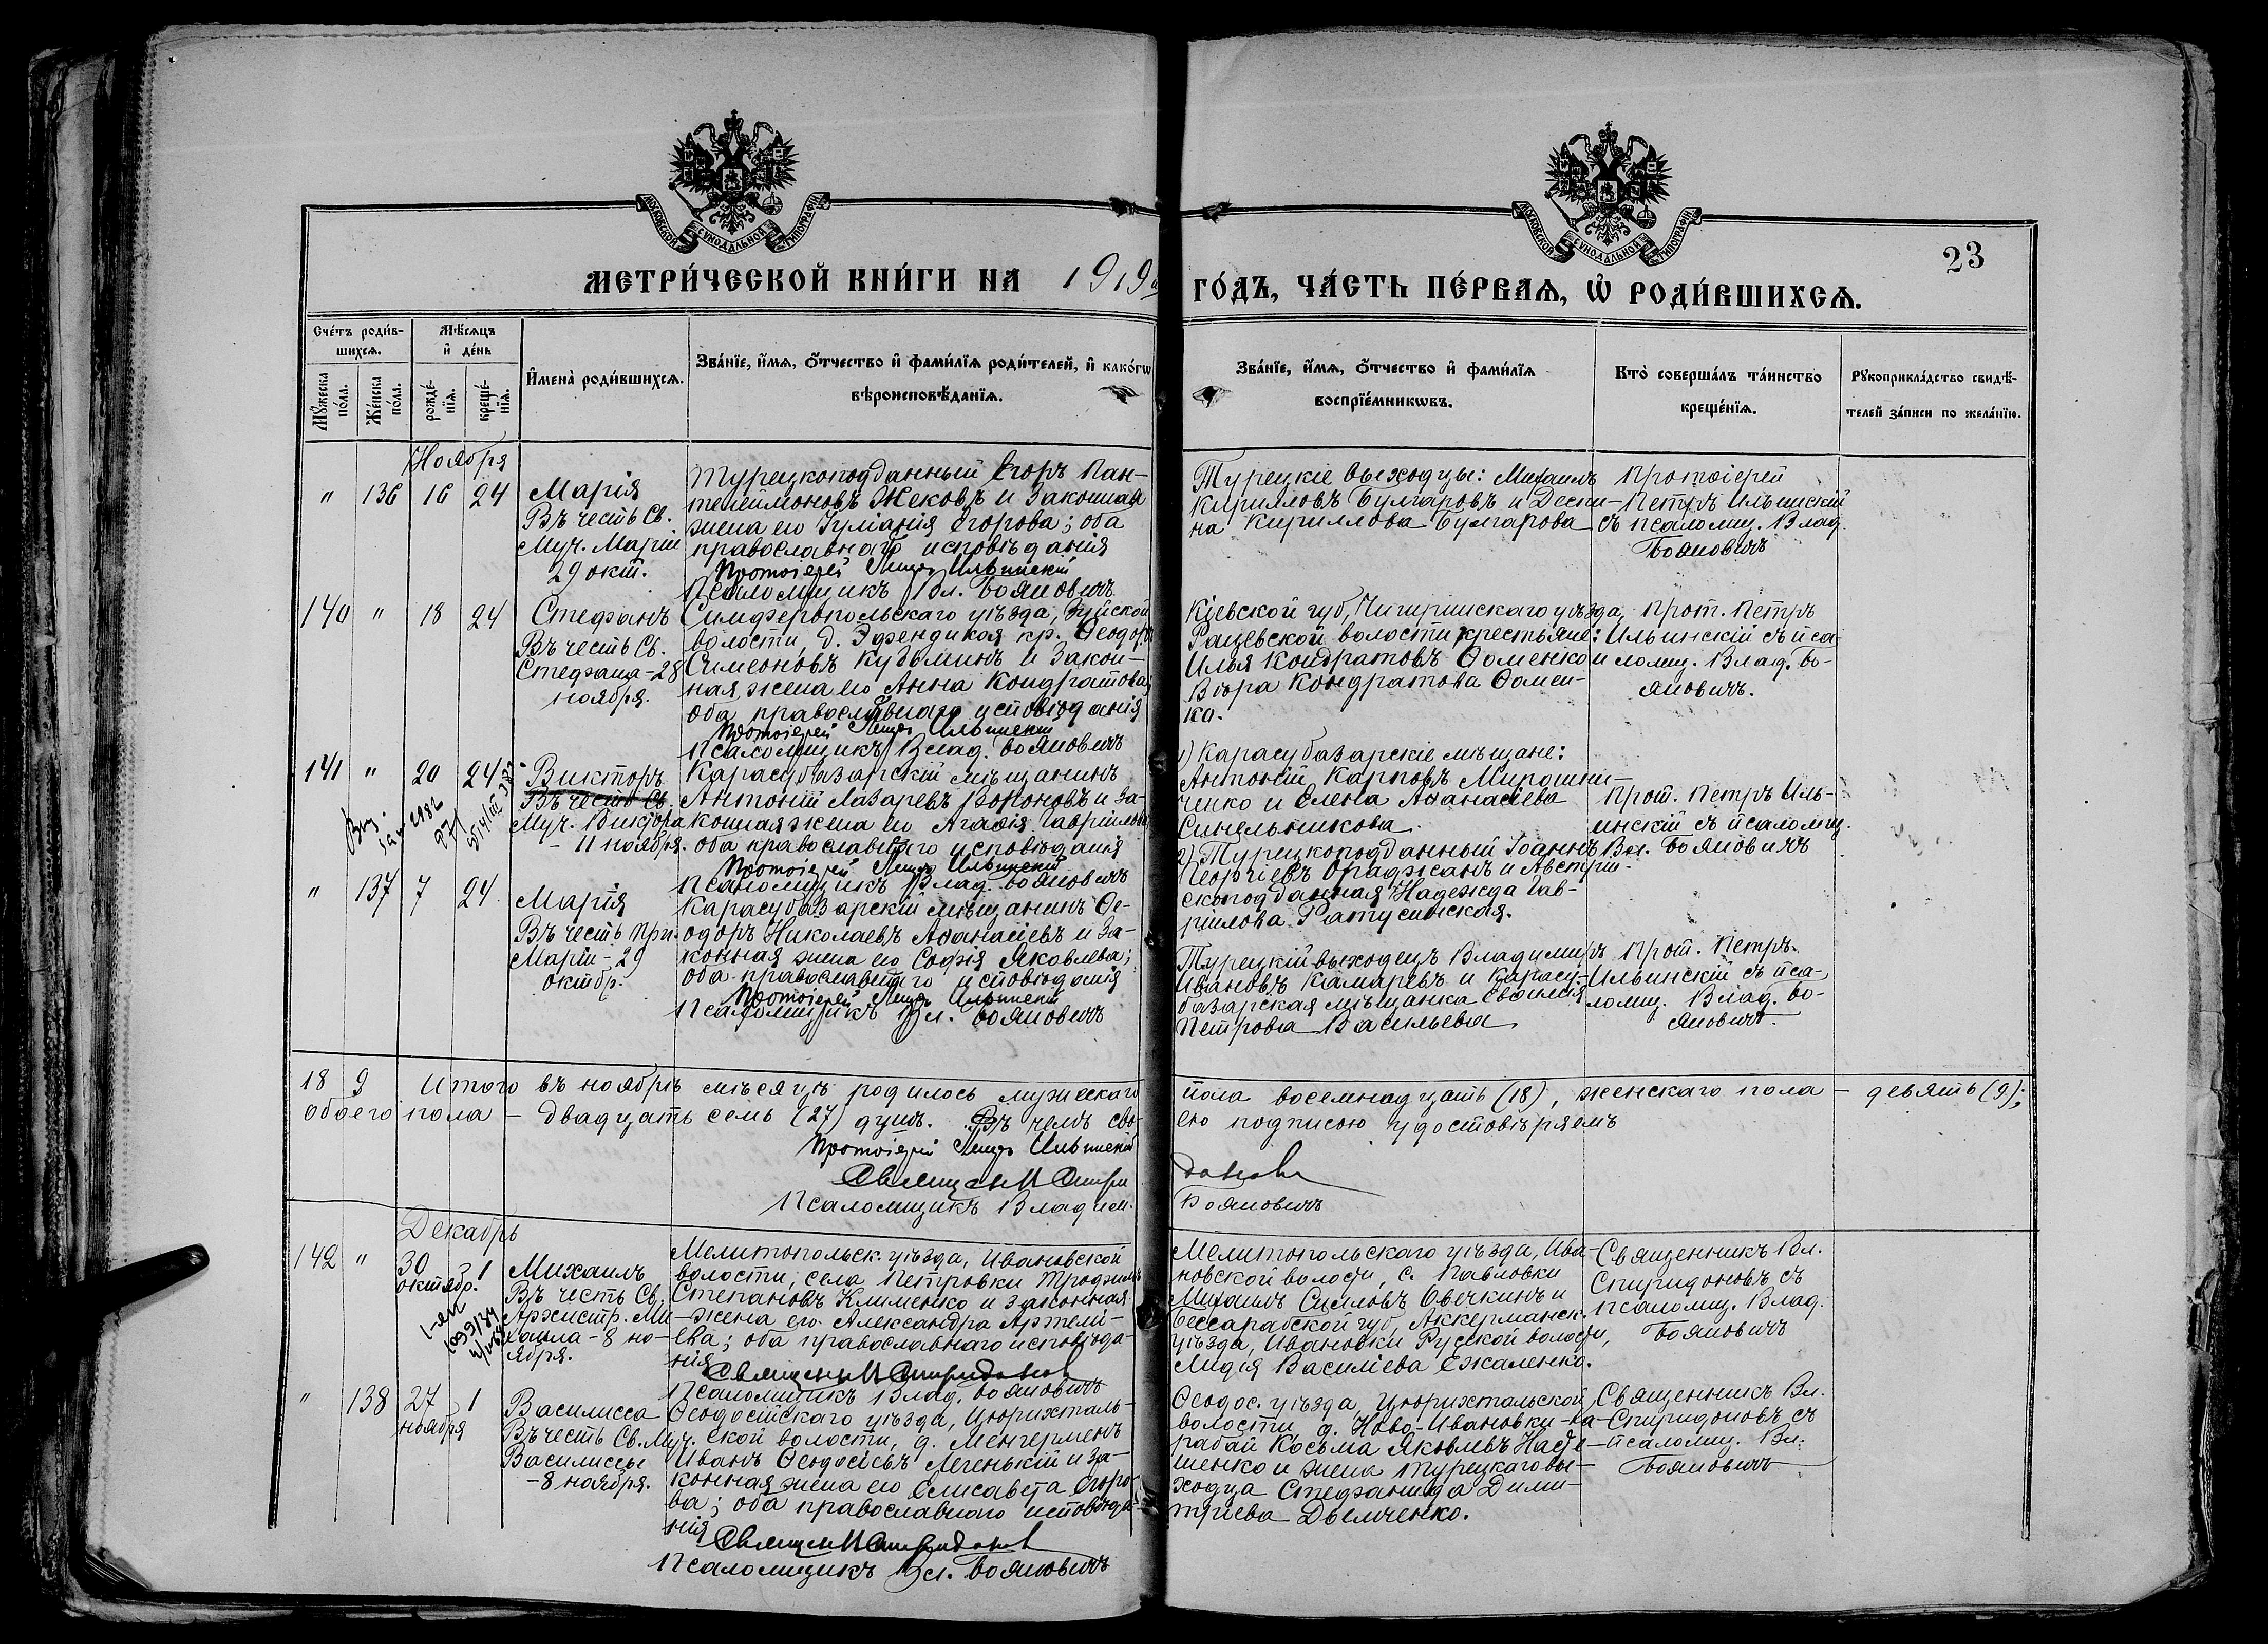 МОСКОВСКОЙ СѴНОДАЛЬНОЙ ТИПОГРАФІИ
МОСКОВСКОЙ СѴНОДАЛЬНОЙ ТИПОГРАФІИ
23
МЕТРИ́ЧЕСКОЙ КНИ́ГИ НА 1919й ГО́ДЪ, ЧА́СТЬ ПЕ́РВАѦ, Ѡ҆ РОДИ́ВШИХСѦ.
Сче́тъ роди́в-
шихсѧ.
Мѣ́сѧцъ
и҆ де́нь
Мꙋ́жеска по́ла.
Же́нска по́ла.
рожде́-
нїѧ.
креще́-
нїѧ.
И҆мена̀ роди́вшихсѧ.
Зва́нїе, и҆́мѧ, ѻ҆́тчество и҆ фами́лїѧ роди́телей, и҆ како́гѡ
вѣроисповѣ́данїѧ.
Зва́нїе, и҆́мѧ, ѻ҆́тчество и҆ фами́лїѧ
воспрїе́мникѡвъ.
Кто̀ соверша́лъ та́инство
креще́нїѧ.
Рꙋкоприкла́дство свидѣ́-
телей за́писи по жела́нїю.
Ноября
" 136 16 24
Марія
Въ честь Св.
Муч. Маріи
29 окт.
Турецкоподданный Егоръ Пан-
телеймоновъ Жековъ и законная
жена его Іуліанія Егорова; оба
православнаго исповѣданія
Протоіерей Петръ Ильинскій
Псаломщикъ Вл. Бояновичъ
Турецкіе выходцы: Михаилъ
Кирилловъ Булгаровъ и Деспи-
на Кириллова Булгарова
Протоіерей
Петръ Ильинскій
съ псаломщ. Влад.
Бояновичъ
140 " 18 24
Стефанъ
Въ честь Св.
Стефана - 28
ноября.
Симферопольскаго уѣзда, Зуйской
волости, д. Эфендикоя кр. Ѳеодоръ
Симеоновъ Кузьминъ и закон-
ная жена его Анна Кондратова;
оба православнаго исповѣданія
Протоіерей Петръ Ильинскій
Псаломщикъ Влад. Бояновичъ
Кіевской губ, Чигиринскаго уѣзда,
Рацевской волости крестьяне:
Илья Кондратовъ Ѳоменко и
Вѣра Кондратова Ѳомен-
ко.
Прот. Петръ
Ильинскій съ пса-
ломщ. Влад. Бо-
яновичъ.
141 " 20 24
Викторъ
Въ честь Св.
Муч. Виктора
- 11 ноября.
Карасубазарскій мѣщанинъ
Антоній Лазаревъ Кононовъ и за-
конная жена его Агаѳія Гавріилова
оба православнаго исповѣданія
Протоіерей Петръ Ильинскій
Псаломщикъ Влад. Бояновичъ
1) Карасубазарскіе мѣщане:
Антоній Карповъ Мирошни-
ченко и Елена Аѳанасіева
Синельникова.
2) Турецкоподданный Іоаннъ
Георгіевъ Ораджанъ и Австрій-
скоподданная Надежда Гав-
ріилова Ратусинская.
Прот. Петръ Иль-
инскій съ псаломщ.
Вл. Бояновичъ
" 137 7 24
Марія
Въ честь Прп.
Маріи - 29
октбр.
Карасубазарскій мѣщанинъ Ѳе-
одоръ Николаевъ Аѳанасіевъ и за-
конная жена его Софія Яковлева;
оба православнаго исповѣданія
Протоіерей Петръ Ильинскій
Псаломщикъ Вл. Бояновичъ
Турецкій выходецъ Владимиръ
Ивановъ Камаревъ и Карасу-
базарская мѣщанка Евѳимія
Петрова Васильева
Прот. Петръ
Ильинскій съ пса-
ломщ. Влад. Бо-
яновичъ.
18 9 Итого въ ноябрѣ мѣсяцѣ родилось мужескаго пола восемнадцать (18), женскаго пола - девять (9);
обоего пола - двадцать семь (27) душъ. Въ чемъ сво-
ею подписью удостовѣряемъ
Протоіерей Петръ Ильинскій
Священникъ Спиридоновъ
Псаломщикъ Владим. Бояновичъ
Декабрь
142 " 30 октябр. 1
Михаилъ
Въ честь Св.
Архистр. Ми-
хаила - 8 но-
ября.
Мелитопольск. уѣзда, Ивановской
волости, села Петровки Трофимъ
Степановъ Клименко и законная
жена его Александра Артемі-
ева; оба православнаго исповѣда-
нія
Священникъ Спиридоновъ
Псаломщикъ Влад. Бояновичъ
Мелитопольскаго уѣзда, Ива-
новской волости, с. Павловки
Михаилъ Сысоевъ Овечкинъ и
Бессарабской губ, Аккерманск.
уѣзда, Ивановки Русской волости,
Лидія Василіева Ежаленко.
Священникъ Вл.
Спиридоновъ съ
псаломщ. Влад.
Бояновичъ
" 138 27 ноября 1
Василисса
Въ честь Св. Муч.
Василиссы
- 8 ноября.
Ѳеодосійскаго уѣзда, Цюрихталь-
ской волости, д. Менгерменъ
Иванъ Ѳеодосіевъ Легенькій и за-
конная жена его Елисавета Егоро-
ва; оба православнаго исповѣда-
нія
Священникъ Спиридоновъ
Псаломщикъ Вл. Бояновичъ
Ѳеодос. уѣзда, Цюрихтальской
волости, д. Ново-Ивановки-Ка-
рабай Косьма Яковлевъ Наде-
шенко и жена Турецкаго вы-
ходца Стефанида Дими-
тріева Дьемченко.
Священникъ Вл.
Спиридоновъ съ
псаломщ. Вл.
Бояновичъ